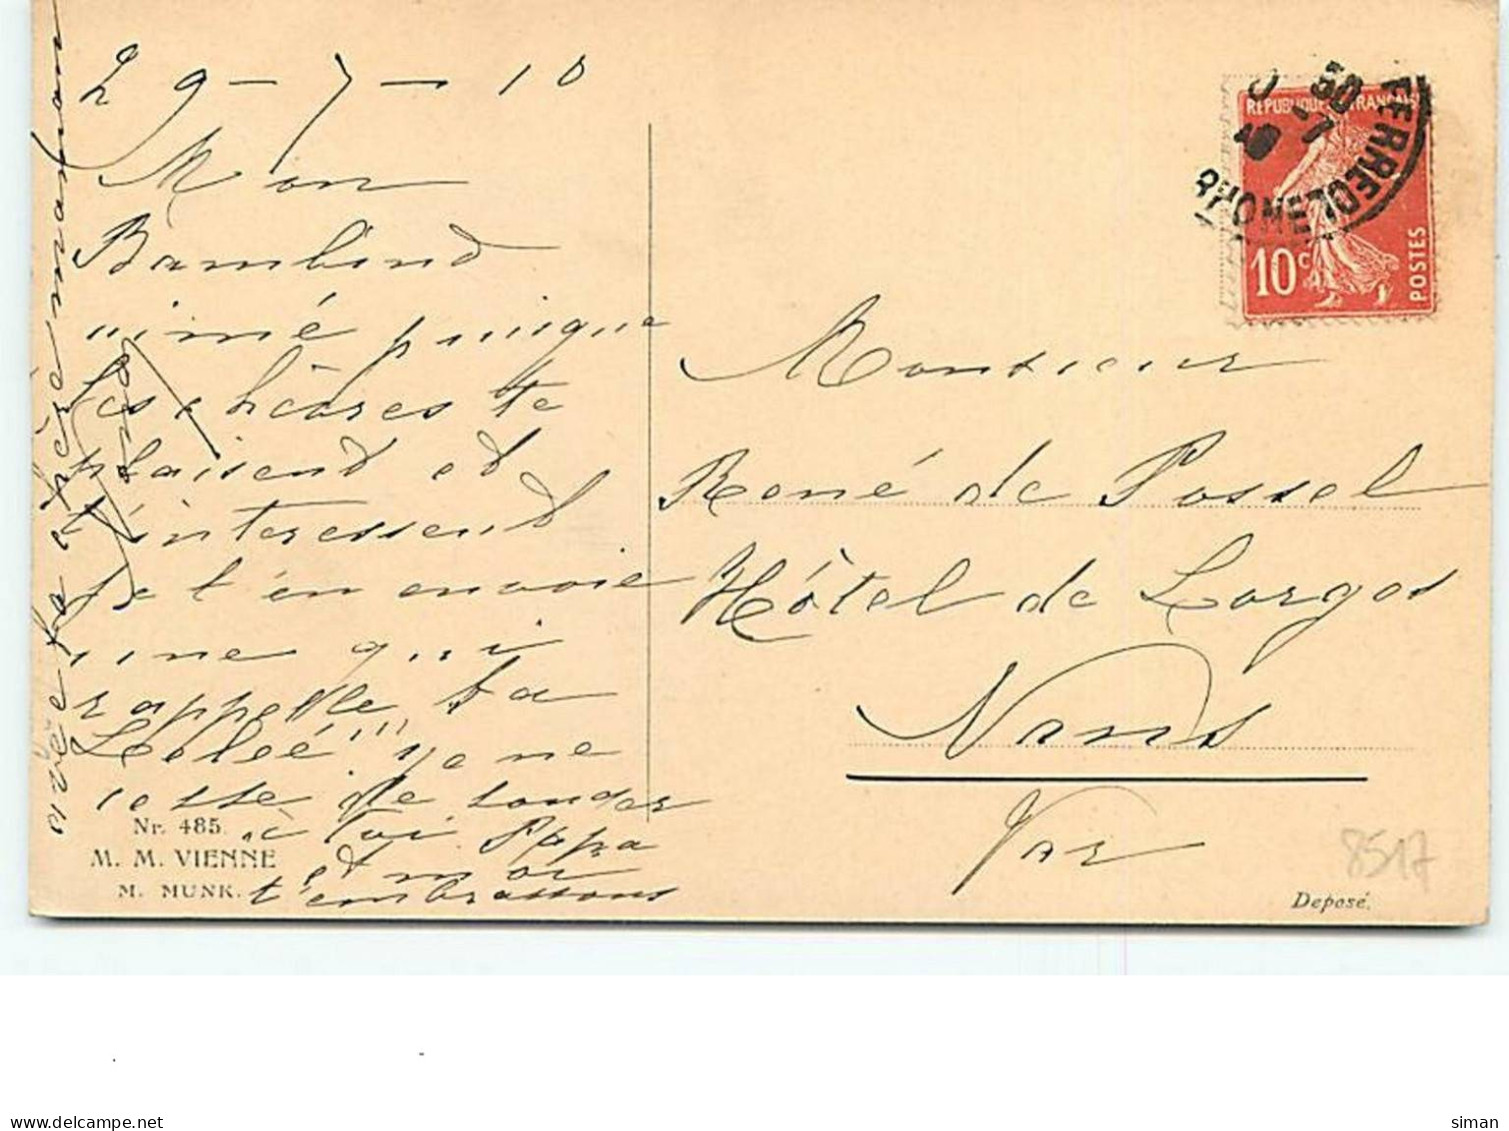 29-7-10
Mon
Bambino
aimé puisque
les chèvres te
plaisent et
t'interessent
je t'en envoie
une qui
rappelle ta
je ne
cesse de
à toi Papa
et moi
t'embrassons
avec ta chère maman
Nr. 485.
M. M. VIENNE
M. MUNK.
REPUBLIQUE FRANÇAISE
10c
POSTES
FERREOL
RHONE
Monsieur
René de Possel
Hôtel de Lorges
Nans
Var
8517
Deposé.
www.delcampe.net
siman